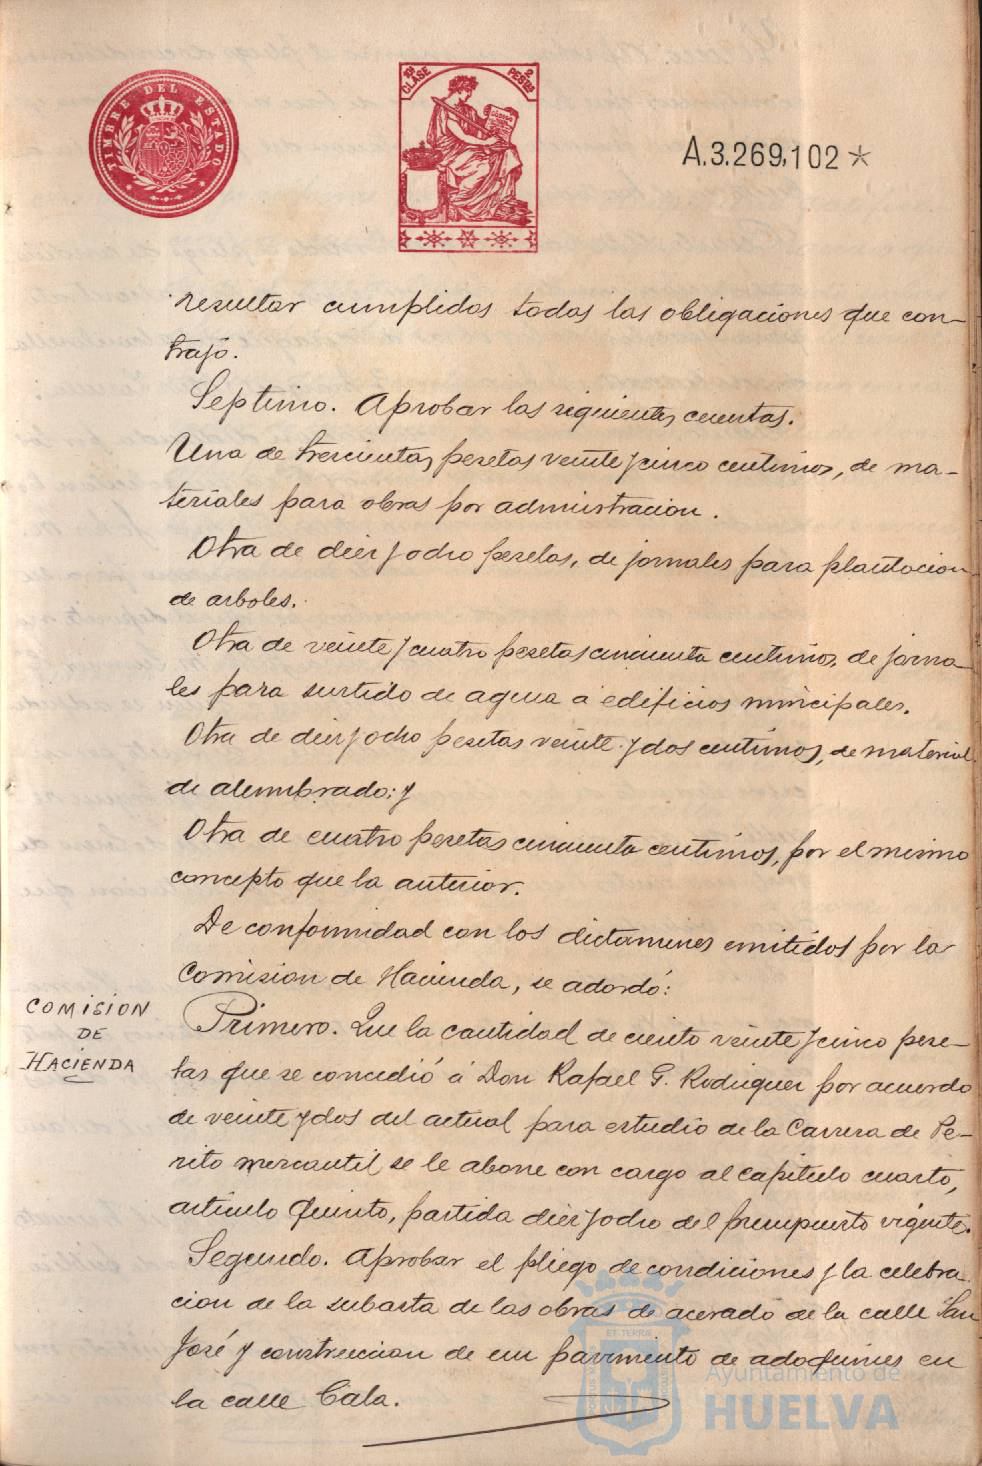 TIMBRE DEL ESTADO
10ª CLASE
2 PESTAS
A.3.269,102 *
resultar cumplidas todas las obligaciones que con-
trajó.
Septimo. Aprobar las siguientes cuentas.
Una de trescientas pesetas veinte y cinco centimos, de ma-
teriales para obras por administracion.
Otra de diez y ocho pesetas, de jornales para plantacion
de arboles.
Otra de veinte y cuatro pesetas cincuenta centimos, de jorna-
les para surtido de agua a edificios municipales.
Otra de diez y ocho pesetas veinte y dos centimos, de material
de alumbrado; y
Otra de cuatro pesetas cincuenta centimos, por el mismo
concepto que la anterior.
De conformidad con los dictamines emitidos por la
Comision de Hacienda, se acordó:
COMISION
DE
HACIENDA
Primero. Que la cantidad de ciento veinte y cinco pese-
tas que se concedió á Don Rafael G. Rodriguez por acuerdo
de veinte y dos del actual para estudio de la Carrera de Pe-
rito mercantil se le abone con cargo al capitulo cuarto,
articulo quinto, partida diez y ocho del presupuesto vigente.
Segundo. Aprobar el pliego de condiciones y la celebra-
cion de la subasta de las obras de acerado de la calle San
José y construccion de un pavimento de adoquines en
la calle Cala.
Ayuntamiento de
HUELVA